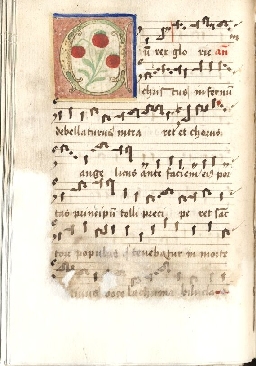 Cũ rex glo rie an̄
chris tus infernũ
debellaturus intra ret et chorus
ange licus ante faciem eiꝰ por
tas principũ tolli preci pe ret sāc
torũ populus q̃ tenebatur in morte